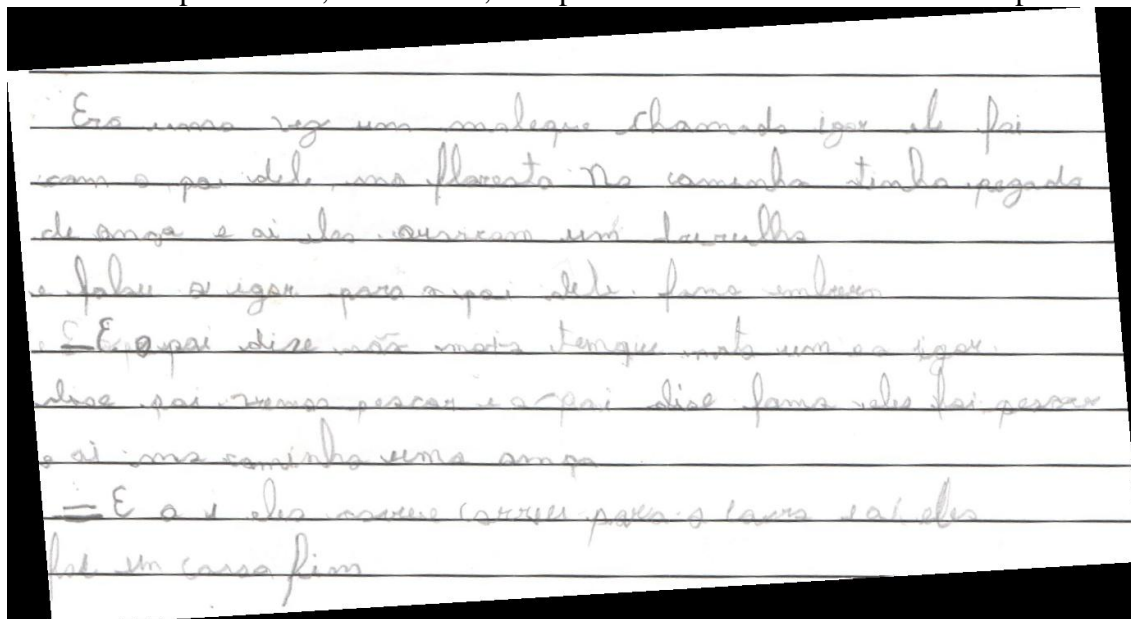 Era uma vez um moleque chamado igor ele foi
com o pai dele na floresta No caminho tinha pegada
de onça e ai eles ouviram um barulho
e falou o igor para o pai dele. famo embora
E o pai dise não mais temque mata um e o igor
dise pai vamos pescar e o pai dise famo eles foi pescar
e ai no caminho uma onça
E a i eles correu para o carro e ai eles
foi em casa fim